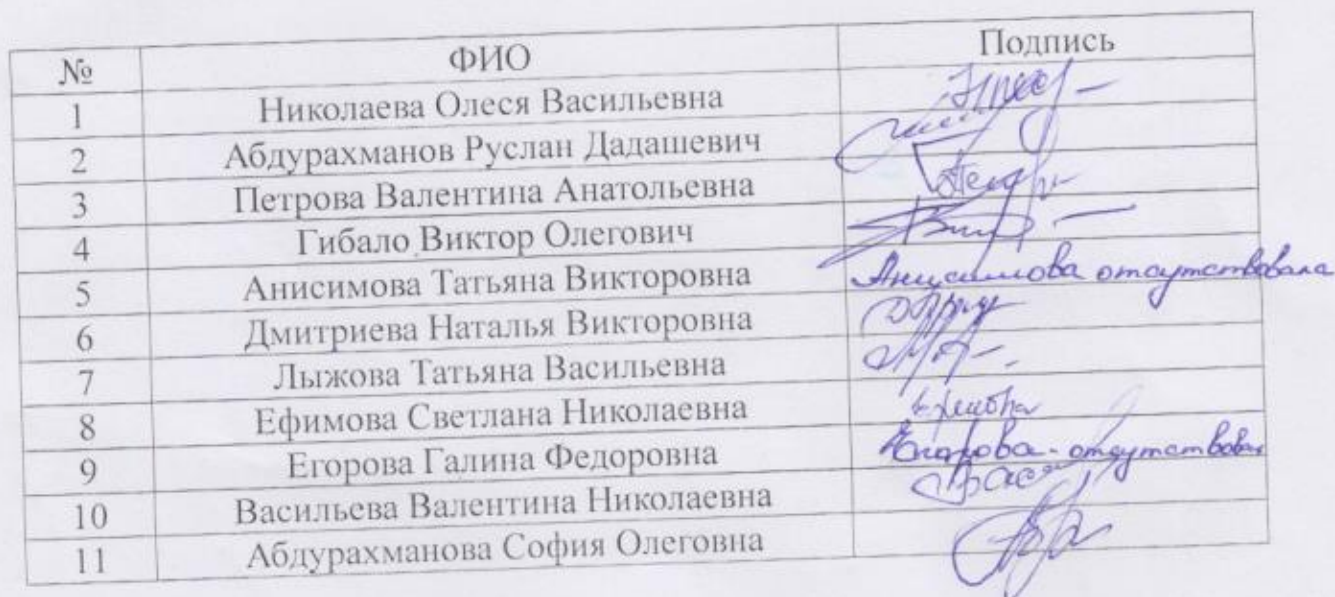 № ФИО Подпись
1 Николаева Олеся Васильевна
2 Абдурахманов Руслан Дадашевич
3 Петрова Валентина Анатольевна
4 Гибало Виктор Олегович
5 Анисимова Татьяна Викторовна Анисимова отсутствовала
6 Дмитриева Наталья Викторовна
7 Лыжова Татьяна Васильевна
8 Ефимова Светлана Николаевна
9 Егорова Галина Федоровна Егорова - отсутствовал
10 Васильева Валентина Николаевна
11 Абдурахманова София Олеговна